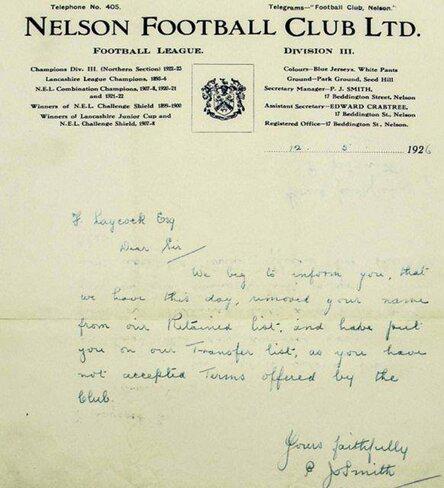 Telephone No. 405.
Telegrams—"Football Club, Nelson."
NELSON FOOTBALL CLUB LTD.
FOOTBALL LEAGUE.
DIVISION III.
Champions Div. III. (Northern Section) 1922-23
Lancashire League Champions, 1895-6
N.E.L. Combination Champions, 1907-8, 1920-21
and 1921-22
Winners of N.E.L. Challenge Shield 1899-1900
Winners of Lancashire Junior Cup and
N.E.L. Challenge Shield, 1907-8
Colours—Blue Jerseys, White Pants
Ground—Park Ground, Seed Hill
Secretary Manager—P. J. SMITH,
17 Beddington Street, Nelson
Assistant Secretary—EDWARD CRABTREE,
17 Beddington St., Nelson
Registered Office—17 Beddington St., Nelson.
12 . 5 1926
F Laycock Esq
Dear Sir
We beg to inform you, that
we have this day, removed your name
from our Retained list, and have put
you on our Transfer list, as you have
not accepted Terms offered by the
Club.
Yours faithfully
P J Smith